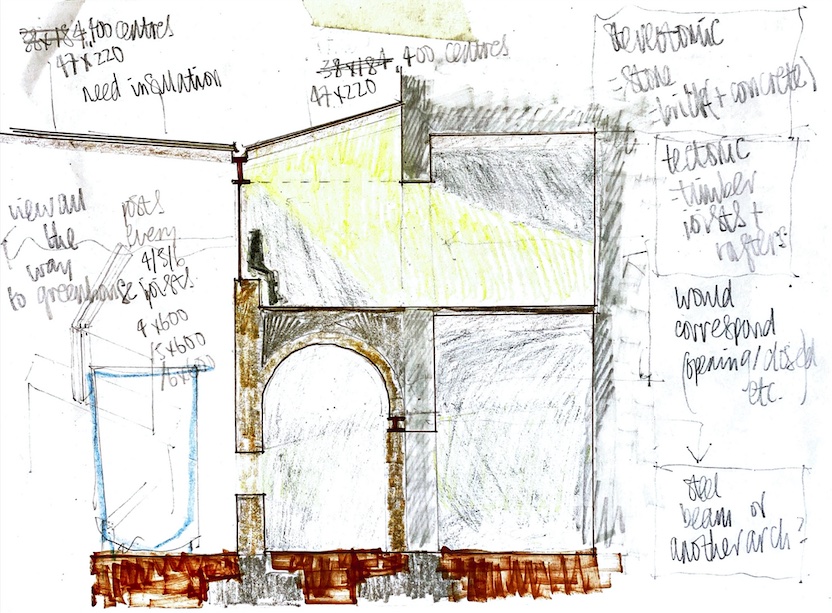 38x184, 400 centres
47x220
need insulation
38x184 400 centres
47x220
stereotomic
= stone
= brick (+ concrete)
tectonic
- timber
joists +
rafters
would
correspond
(opening/closed
etc.
steel
beam or
another arch?
view all
the
way
to greenhouse
joists
every
4/5/6
joists
4x600
/5x600
/6x600